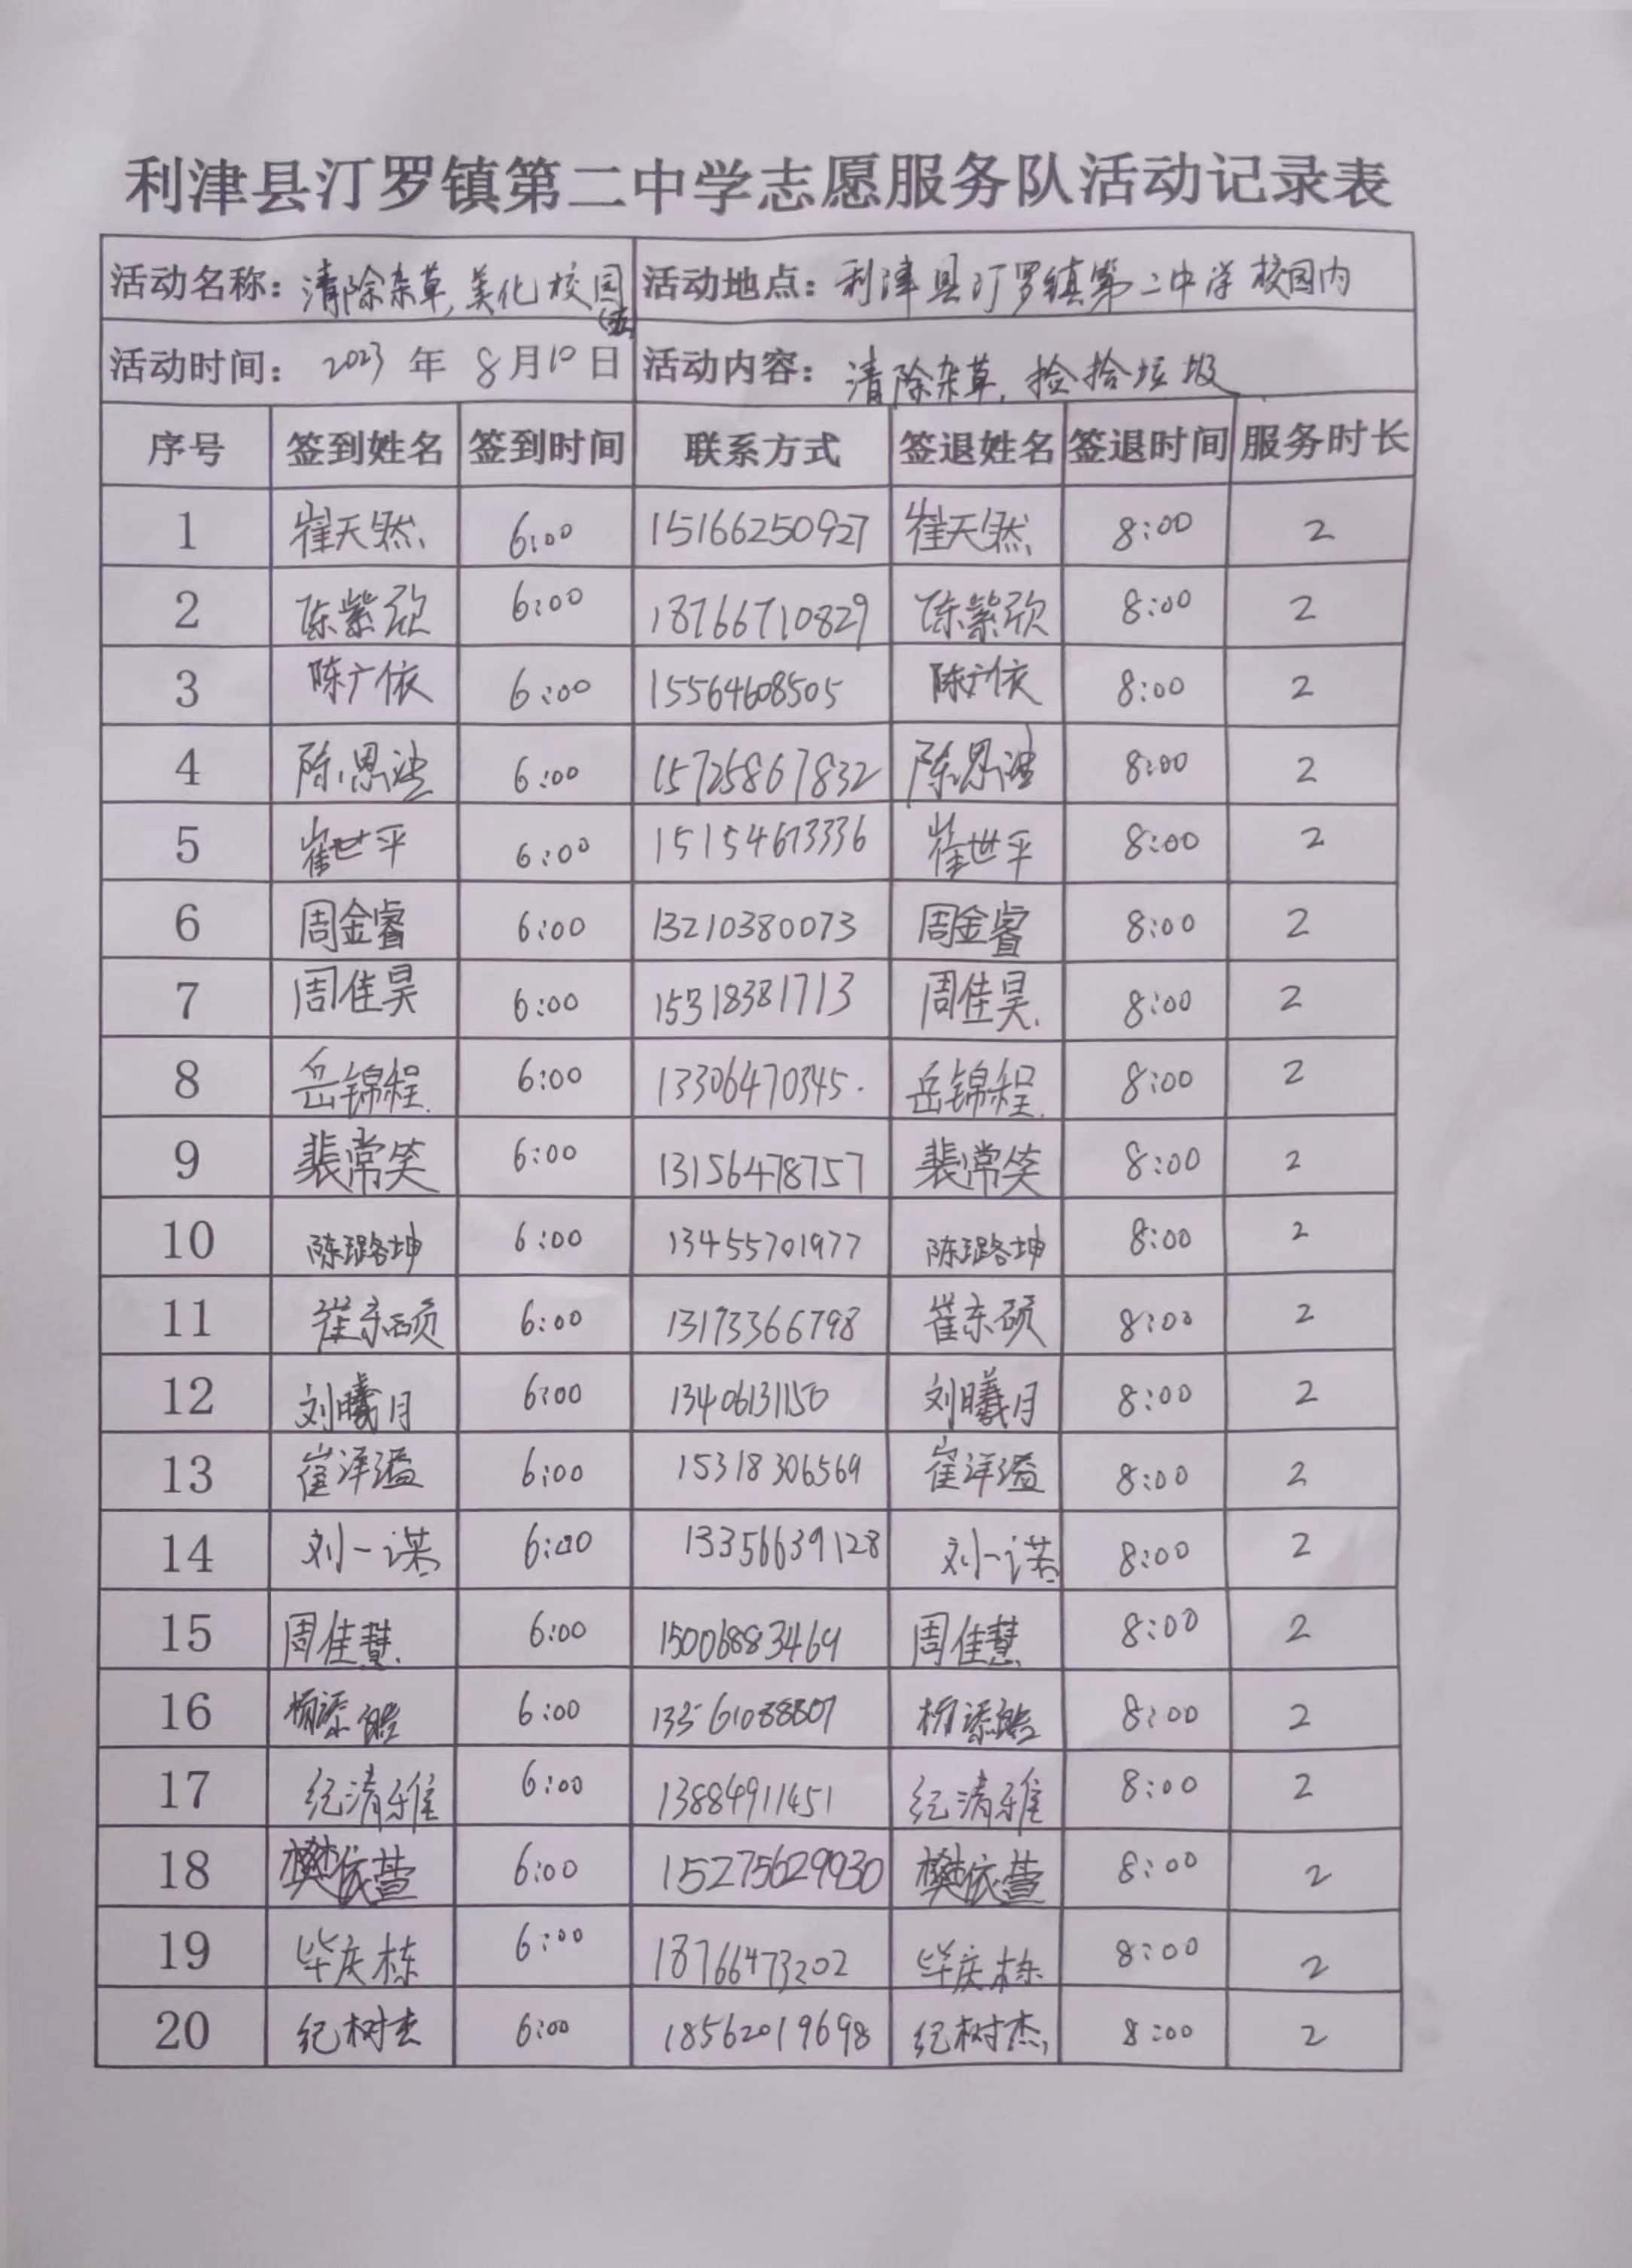 利津县汀罗镇第二中学志愿服务队活动记录表
活动名称：清除杂草,美化校园(五) 活动地点：利津县汀罗镇第二中学校园内
活动时间：2023年8月10日 活动内容：清除杂草,捡拾垃圾
序号 签到姓名 签到时间 联系方式 签退姓名 签退时间 服务时长
1 崔天然 6:00 15166250927 崔天然 8:00 2
2 陈紫欣 6:00 18766710829 陈紫欣 8:00 2
3 陈广依 6:00 15564608505 陈广依 8:00 2
4 陈恩 6:00 15725867832 陈恩 8:00 2
5 崔世平 6:00 15154673336 崔世平 8:00 2
6 周金睿 6:00 13210380073 周金睿 8:00 2
7 周佳昊 6:00 15318381713 周佳昊 8:00 2
8 岳锦程 6:00 13306470345 岳锦程 8:00 2
9 裴常笑 6:00 13156478757 裴常笑 8:00 2
10 陈璐坤 6:00 13455701977 陈璐坤 8:00 2
11 崔东硕 6:00 13173366798 崔东硕 8:00 2
12 刘曦月 6:00 13406131150 刘曦月 8:00 2
13 崔洋溢 6:00 15318306569 崔洋溢 8:00 2
14 刘一诺 6:00 13356639128 刘一诺 8:00 2
15 周佳慧 6:00 15006883469 周佳慧 8:00 2
16 6:00 8:00 2
17 纪清雅 6:00 13884911451 纪清雅 8:00 2
18 樊依萱 6:00 15275629930 樊依萱 8:00 2
19 毕庆栋 6:00 18766473202 毕庆栋 8:00 2
20 纪树杰 6:00 18562019698 纪树杰 8:00 2